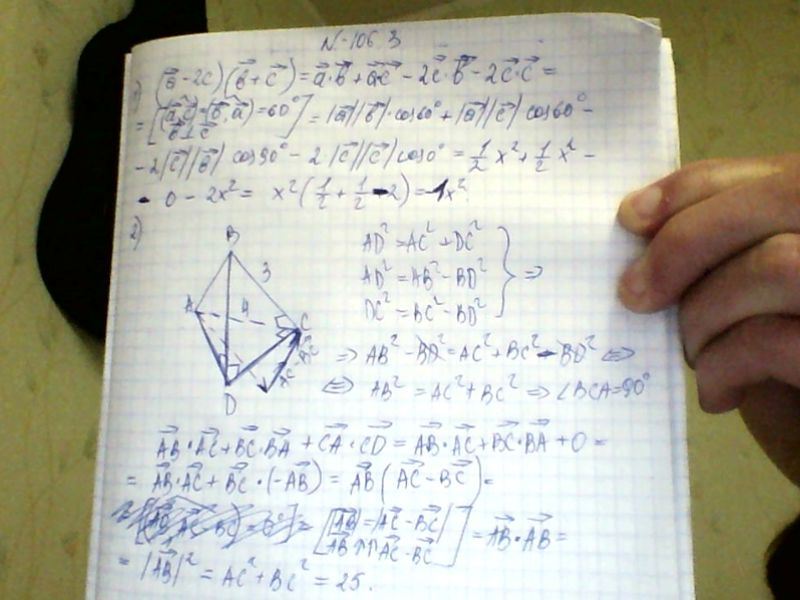 N-106.3
1) (b⃗ - 2c)(b⃗ + c⃗) = a⃗·b⃗ + a⃗c⃗ - 2c⃗·b⃗ - 2c⃗·c⃗ =
= [(a⃗,c⃗)=(b⃗,a⃗)=60° b⃗⊥c⃗] = |a⃗||b⃗|·cos60° + |a⃗||c⃗| cos60° -
- 2|c⃗||b⃗| cos90° - 2·|c⃗||c⃗| cos0° = 1/2 x² + 1/2 x² -
- 0 - 2x² = x²(1/2 + 1/2 - 2) = -1x².
2)
B
3
A
4
C
D
AC⃗-BC⃗
AD² = AC² + DC²
AD² = AB² - BD²
DC² = BC² - BD²
} ⇒
⇒ AB² - BD² = AC² + BC² - BD² ⇔
⇔ AB² = AC² + BC² ⇒ ∠BCA = 90°
AB⃗·AC⃗ + BC⃗·BA⃗ + CA⃗·CD⃗ = AB⃗·AC⃗ + BC⃗·BA⃗ + 0 =
= AB⃗·AC⃗ + BC⃗·(-AB⃗) = AB⃗(AC⃗ - BC⃗) =
= [|AB⃗| = |AC⃗ - BC⃗| AB⃗↑↑AC⃗-BC⃗] = AB⃗·AB⃗ =
= |AB⃗|² = AC² + BC² = 25.